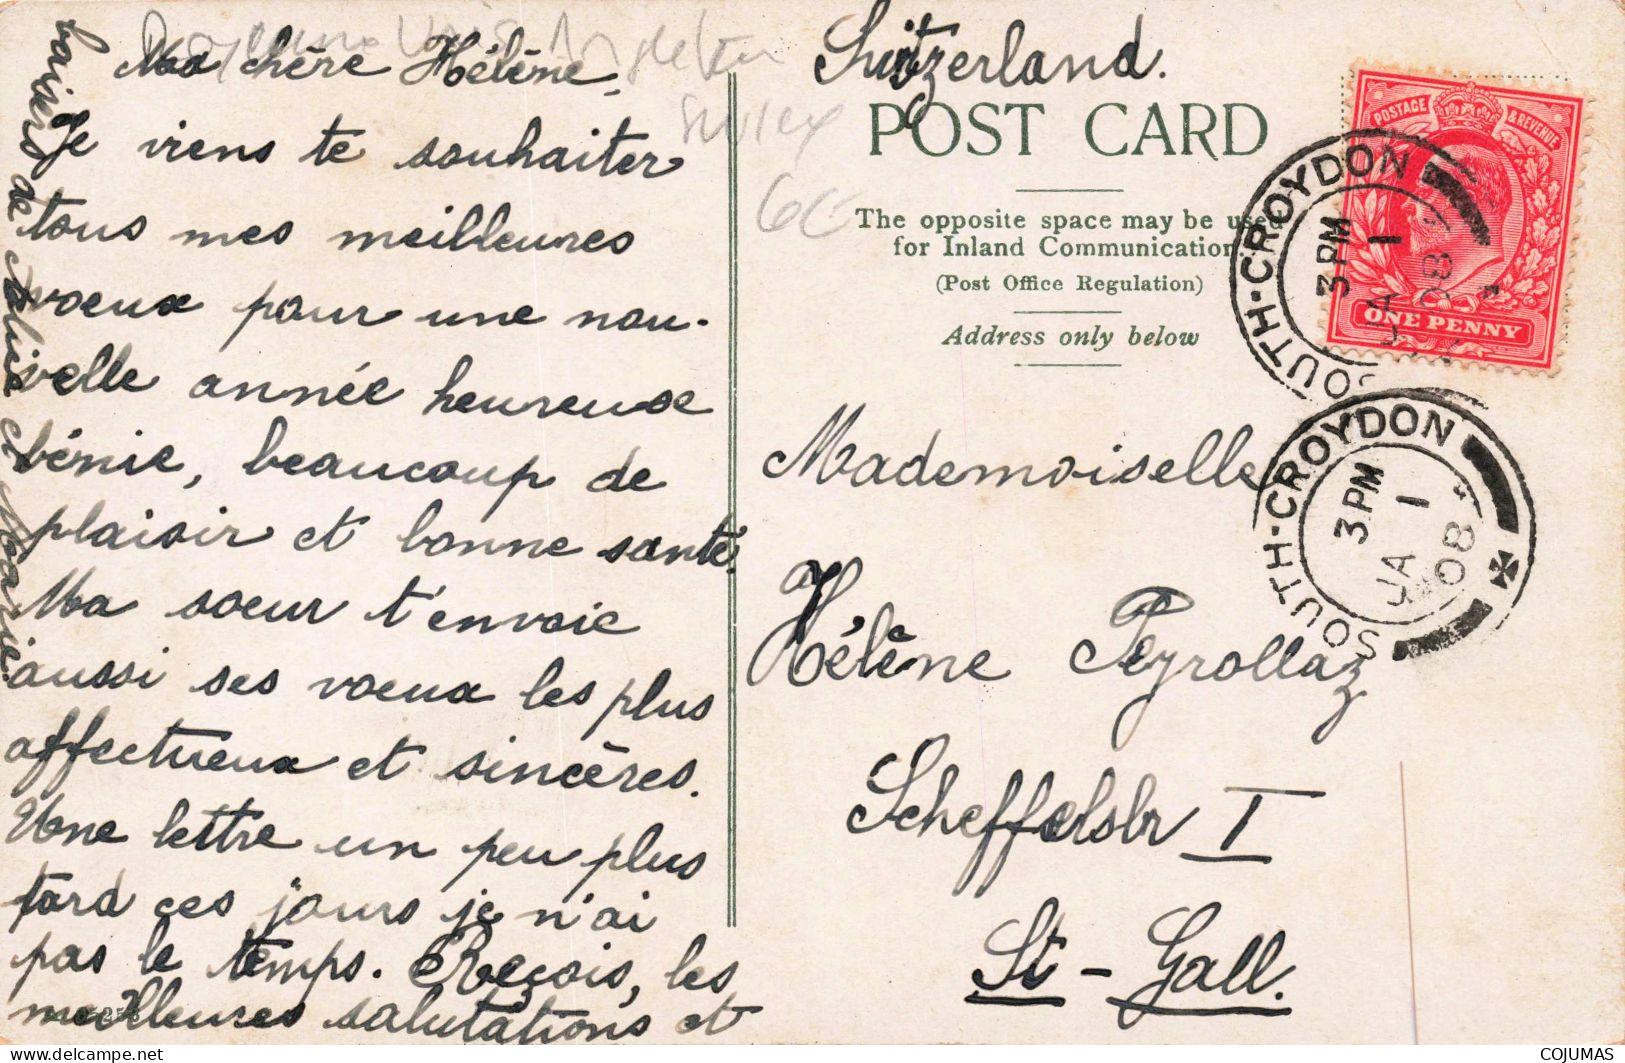 Ma chère Hélène,
Je viens te souhaiter
tous mes meilleures
voeux pour une nou-
velle année heureuse
bénie, beaucoup de
plaisir et bonne santé.
Ma soeur t'envoie
aussi ses voeux les plus
affectueux et sincères.
Une lettre un peu plus
tard ces jours je n'ai
pas le temps. Reçois, les
meilleures salutations et
baisers de Alice et Marie.
Sussex
6€
Switzerland.
POST CARD
The opposite space may be used
for Inland Communication
(Post Office Regulation)
Address only below
Mademoiselle
Hélène Peyrollaz
Scheffelstr I
St-Gall.
POSTAGE & REVENUE
ONE PENNY
SOUTH-CROYDON
3 PM
JA 1
08
SOUTH-CROYDON
3 PM
JA 1
08
delcampe.net
COJUMAS